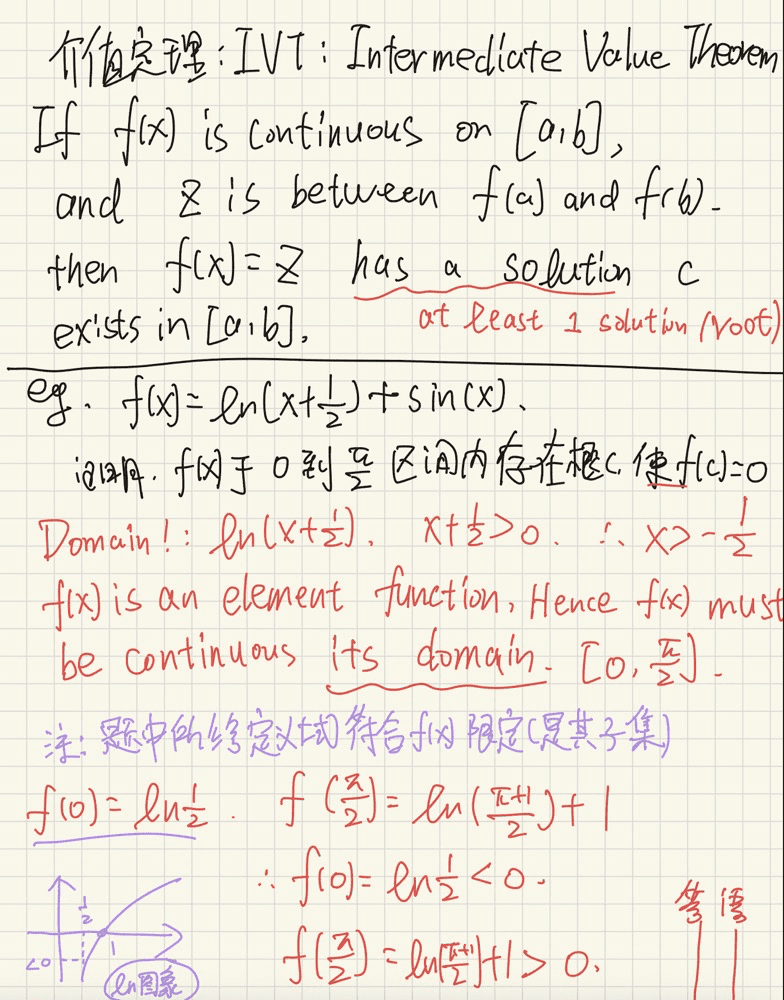 介值定理:IVT: Intermediate Value Theorem
If f(x) is continuous on [a,b],
and Z is between f(a) and f(b).
then f(x)=Z has a solution c
exists in [a,b].
at least 1 solution (root)
eg. f(x)=ln(x+1/2)+sin(x).
证明. f(x)于0到π/2区间内存在根c, 使f(c)=0
Domain!: ln(x+1/2). x+1/2>0. ∴ x>-1/2
f(x) is an element function, Hence f(x) must
be continuous its domain. [0, π/2].
注: 题中所给定义域符合f(x)限定(是其子集)
f(0)=ln1/2. f(π/2)=ln(π+1/2)+1
∴ f(0)=ln1/2<0.
f(π/2)=ln[π+1/2]+1>0.
1/2
1
<0
ln图象